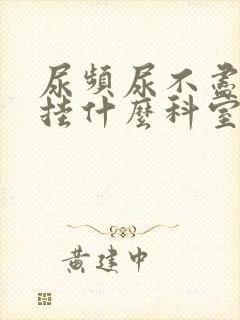 尿頻尿不盡
挂什麼科室
黃建中